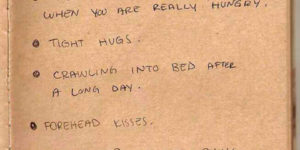 WHEN YOU ARE REALLY HUNGRY.
TIGHT HUGS.
CRAWLING INTO BED AFTER
A LONG DAY.
FOREHEAD KISSES.